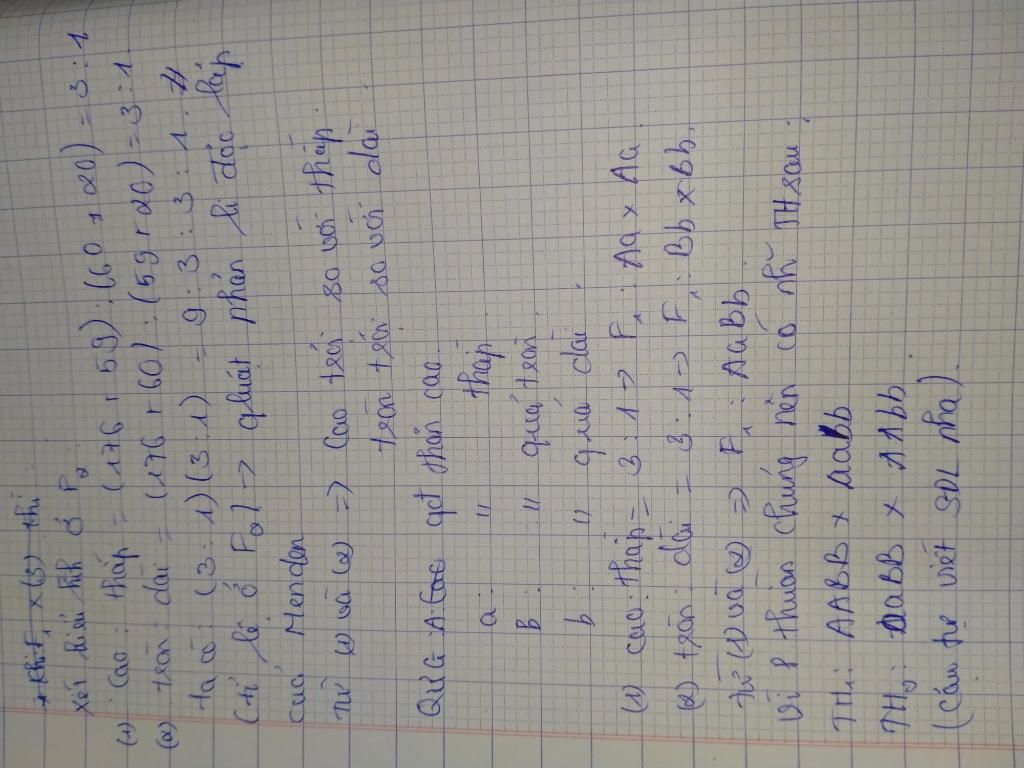 Xét kiểu hình ở F2
(1) Cao : thấp = (176 + 59) : (60 + 20) = 3 : 1
(2) tròn : dài = (176 + 60) : (59 + 20) = 3 : 1
ta có : (3 : 1)(3 : 1) = 9 : 3 : 3 : 1
(tỉ lệ ở F2) -> qluật phân li độc lập
của Menden
từ (1) và (2) => Cao trội so với thấp
tròn trội so với dài
QƯG : A : qđ thân cao.
a : " thấp
B : " quả tròn
b : " quả dài
(1) cao : thấp = 3 : 1 -> F1 : Aa x Aa
(2) tròn : dài = 3 : 1 -> F1 : Bb x Bb.
từ (1) và (2) => F1 : AaBb
Vì P thuần chủng nên có nhữ TH sau :
TH1 : AABB x aabb
TH2 : aaBB x AAbb
(Cậu tự viết SĐL nha).